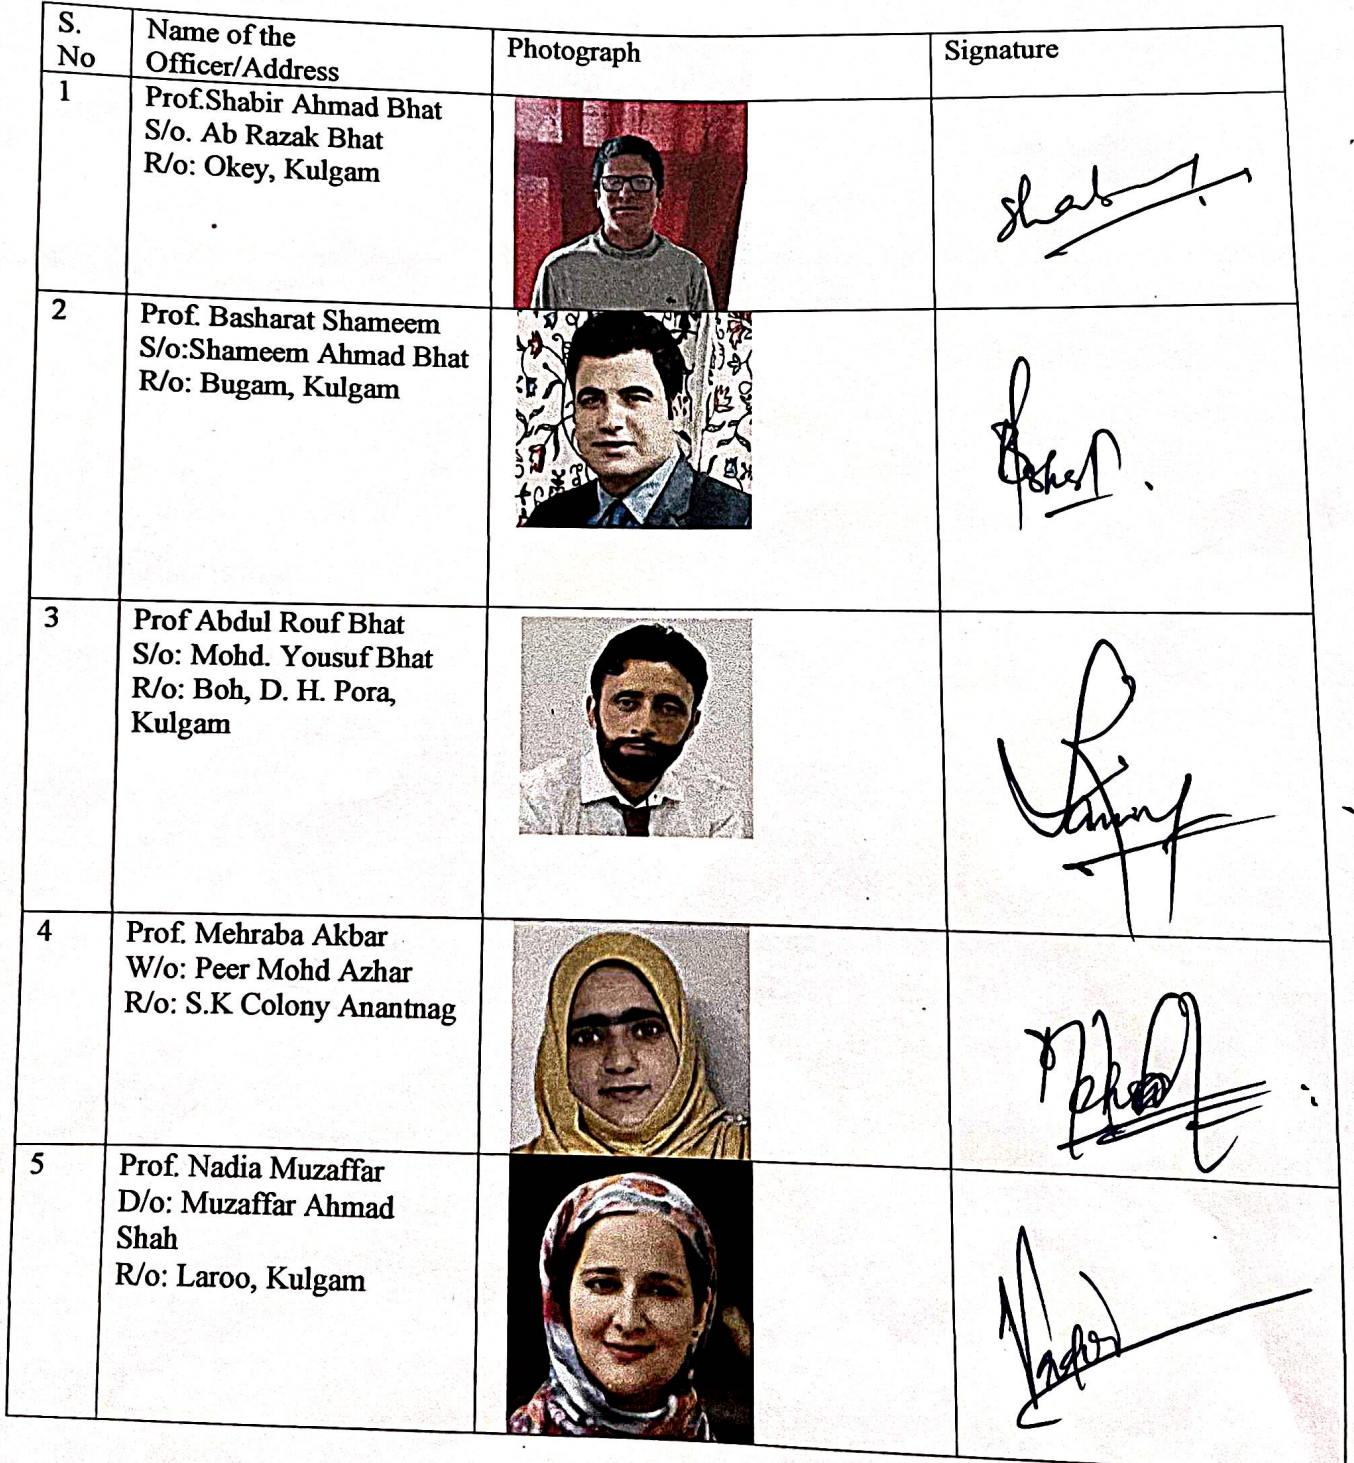 S.
No
Name of the
Officer/Address
Photograph
Signature
1
Prof.Shabir Ahmad Bhat
S/o. Ab Razak Bhat
R/o: Okey, Kulgam
2
Prof. Basharat Shameem
S/o:Shameem Ahmad Bhat
R/o: Bugam, Kulgam
3
Prof Abdul Rouf Bhat
S/o: Mohd. Yousuf Bhat
R/o: Boh, D. H. Pora,
Kulgam
4
Prof. Mehraba Akbar
W/o: Peer Mohd Azhar
R/o: S.K Colony Anantnag
5
Prof. Nadia Muzaffar
D/o: Muzaffar Ahmad
Shah
R/o: Laroo, Kulgam